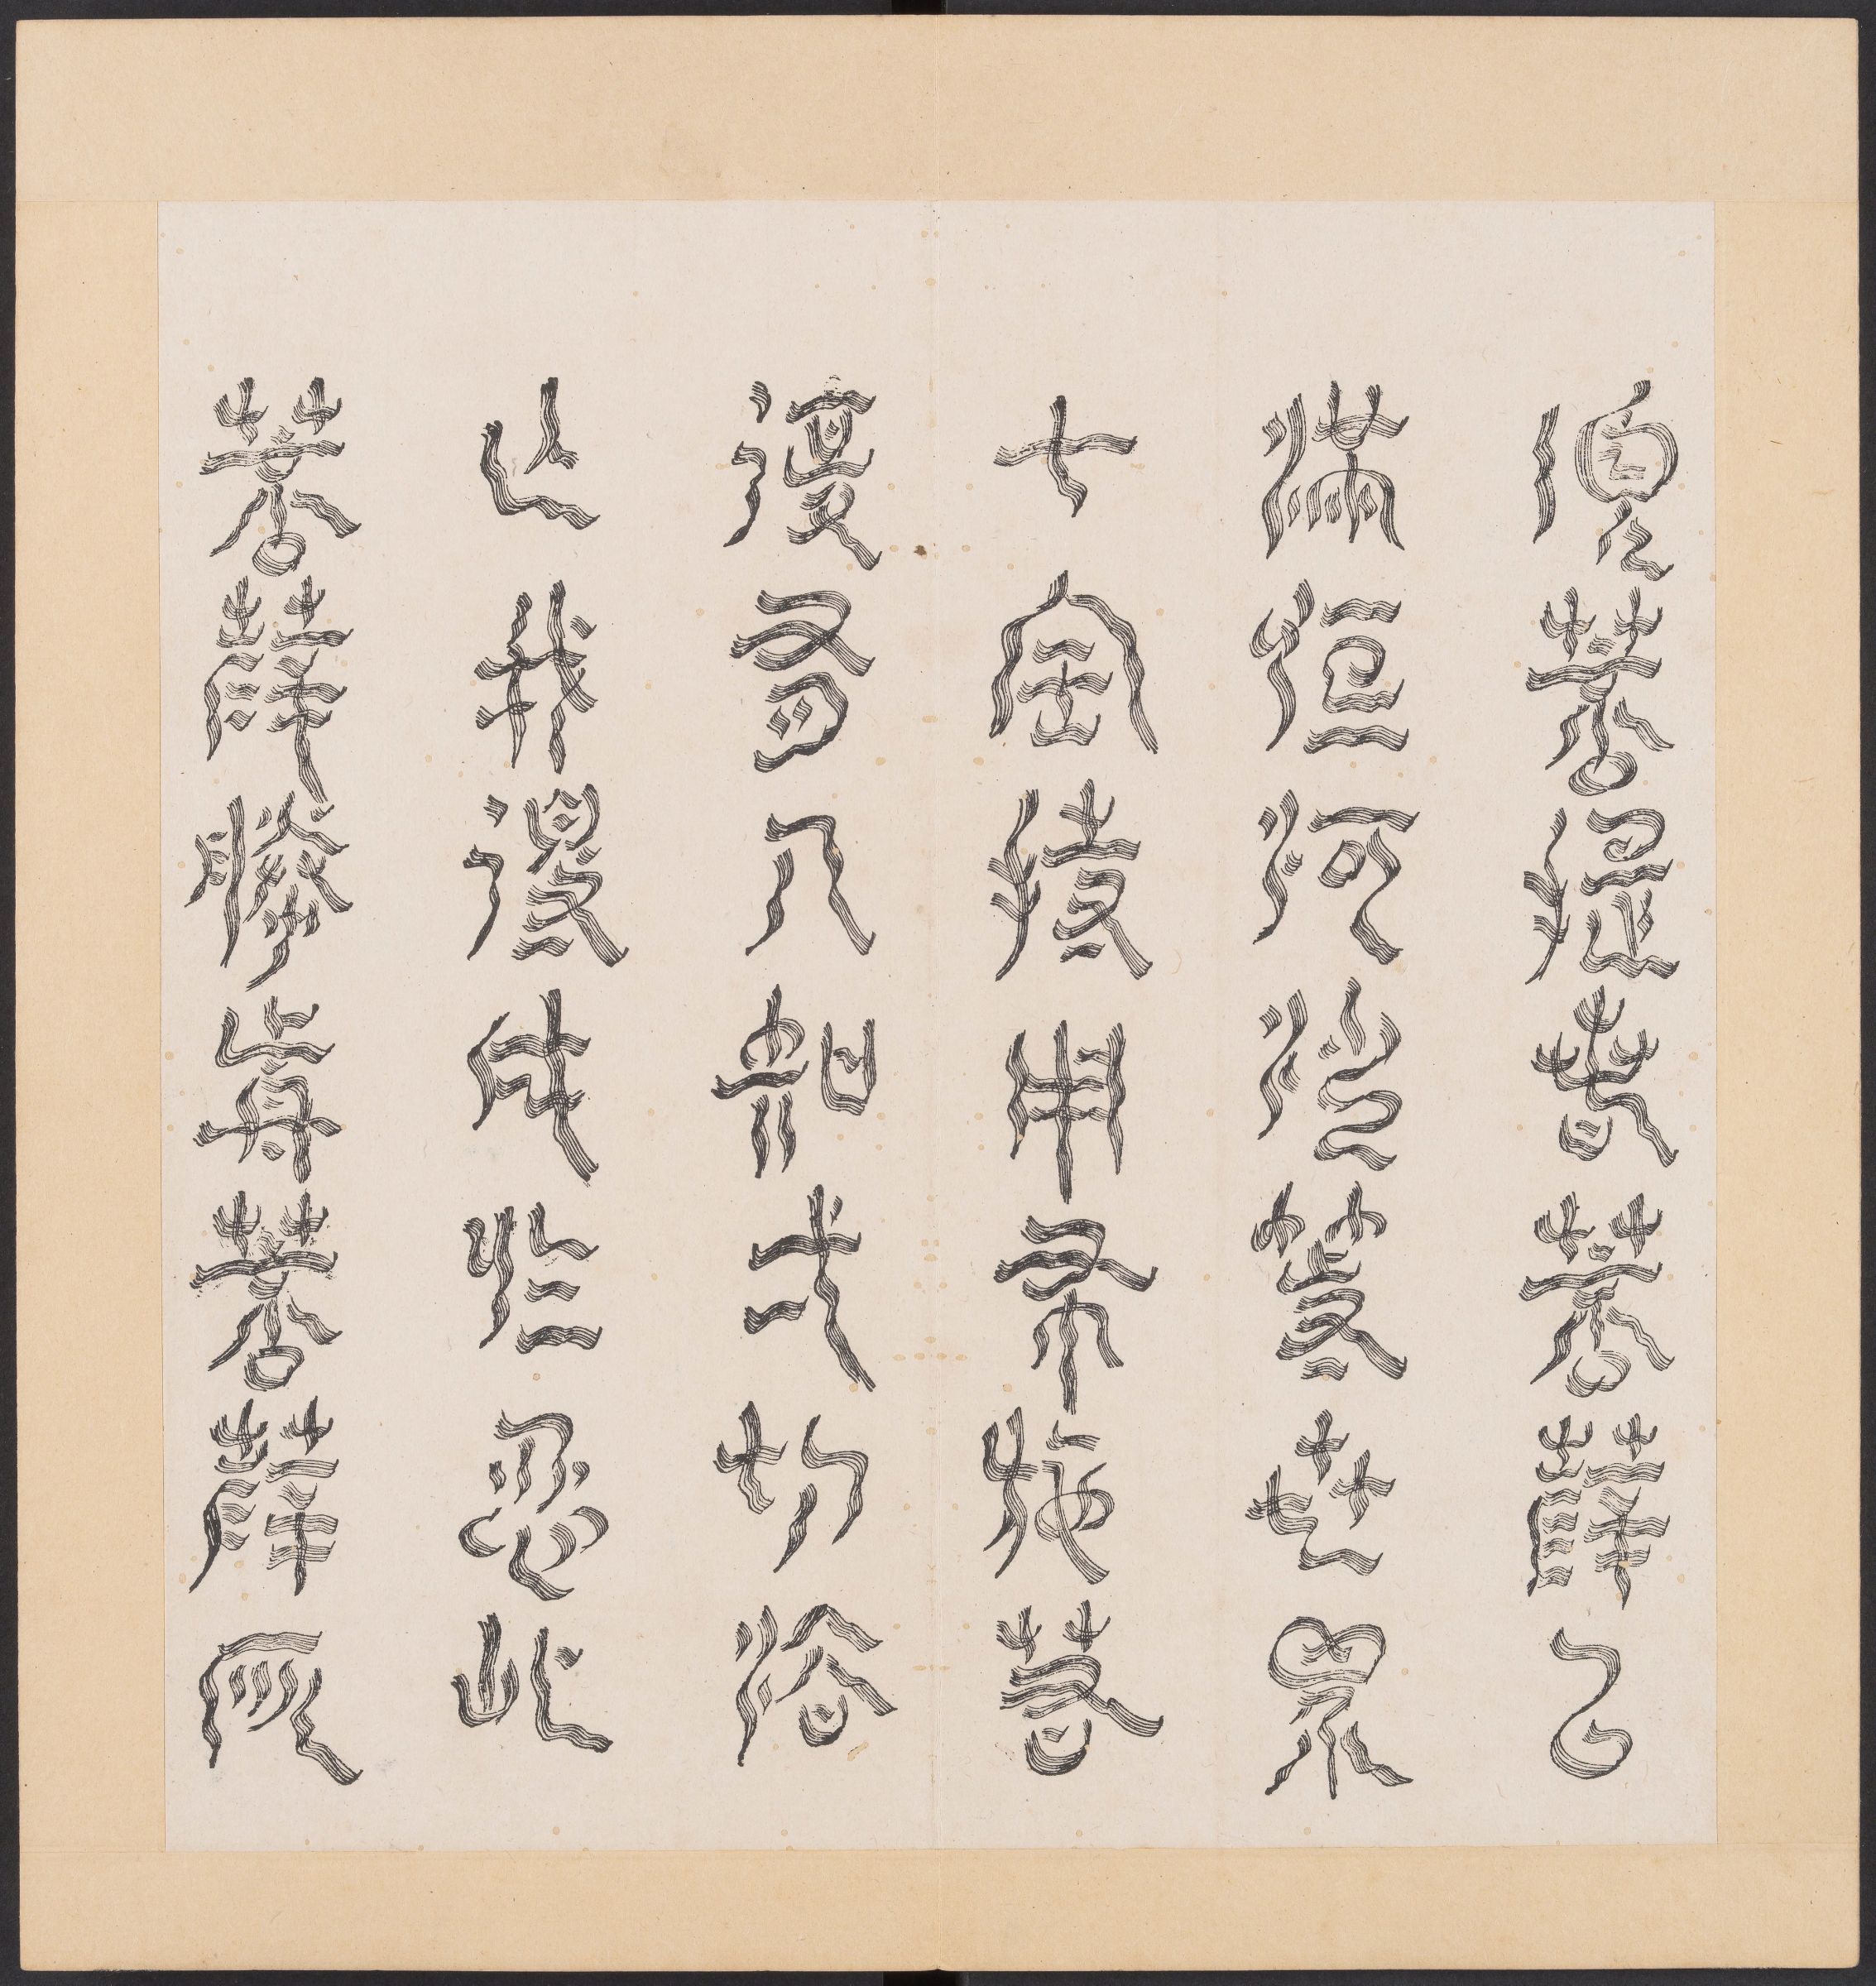 須菩提若菩薩以
滿恒河沙等世界
七寶持用布施若
復有人知一切法
無我得成於忍此
菩薩勝前菩薩所